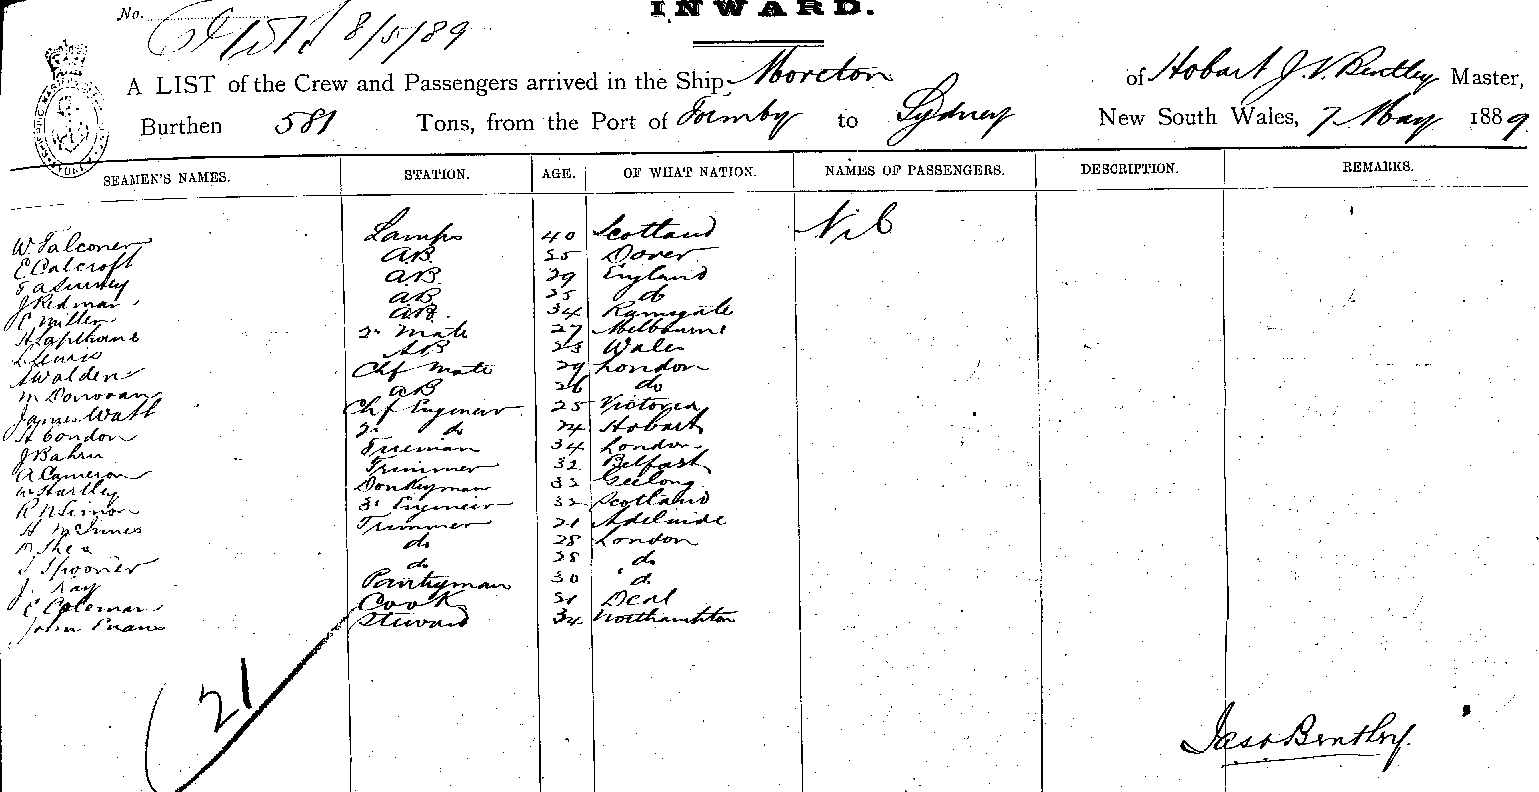 INWARD.
No. 8/5/89
A LIST of the Crew and Passengers arrived in the Ship Moreton of Hobart J. V. Bentley Master,
Burthen 581 Tons, from the Port of Formby to Sydney New South Wales, 7 May 1889
SEAMEN'S NAMES. STATION. AGE. OF WHAT NATION. NAMES OF PASSENGERS. DESCRIPTION. REMARKS.
W. Falconer Lamps 40 Scotland Nil
E Calcroft AB 25 Dover
AB 29 England
J Redman AB 25 do
C Miller AB. 34 Ramsgate
H Lapthorne 2n Mate 27 Melbourne
L Lewis AB 23 Wales
A Walden Chf Mate 29 London
M Donovan AB 26 do
James Watt Chf Engineer 25 Victoria
H Condon 2n do 24 Hobart
J Bahn Fireman 34 London
A Cameron Trimmer 32 Belfast
W Hartley Donkeyman 33 Geelong
R N Simon 3r Engineer 32 Scotland
H McInnes Trimmer 21 Adelaide
D Shea do 28 London
T Spooner do 28 do
J. Kay Pantryman 30 do
E Coleman Cook 31 Deal
John Evans Steward 34 Northampton
21
Jas V Bentley.